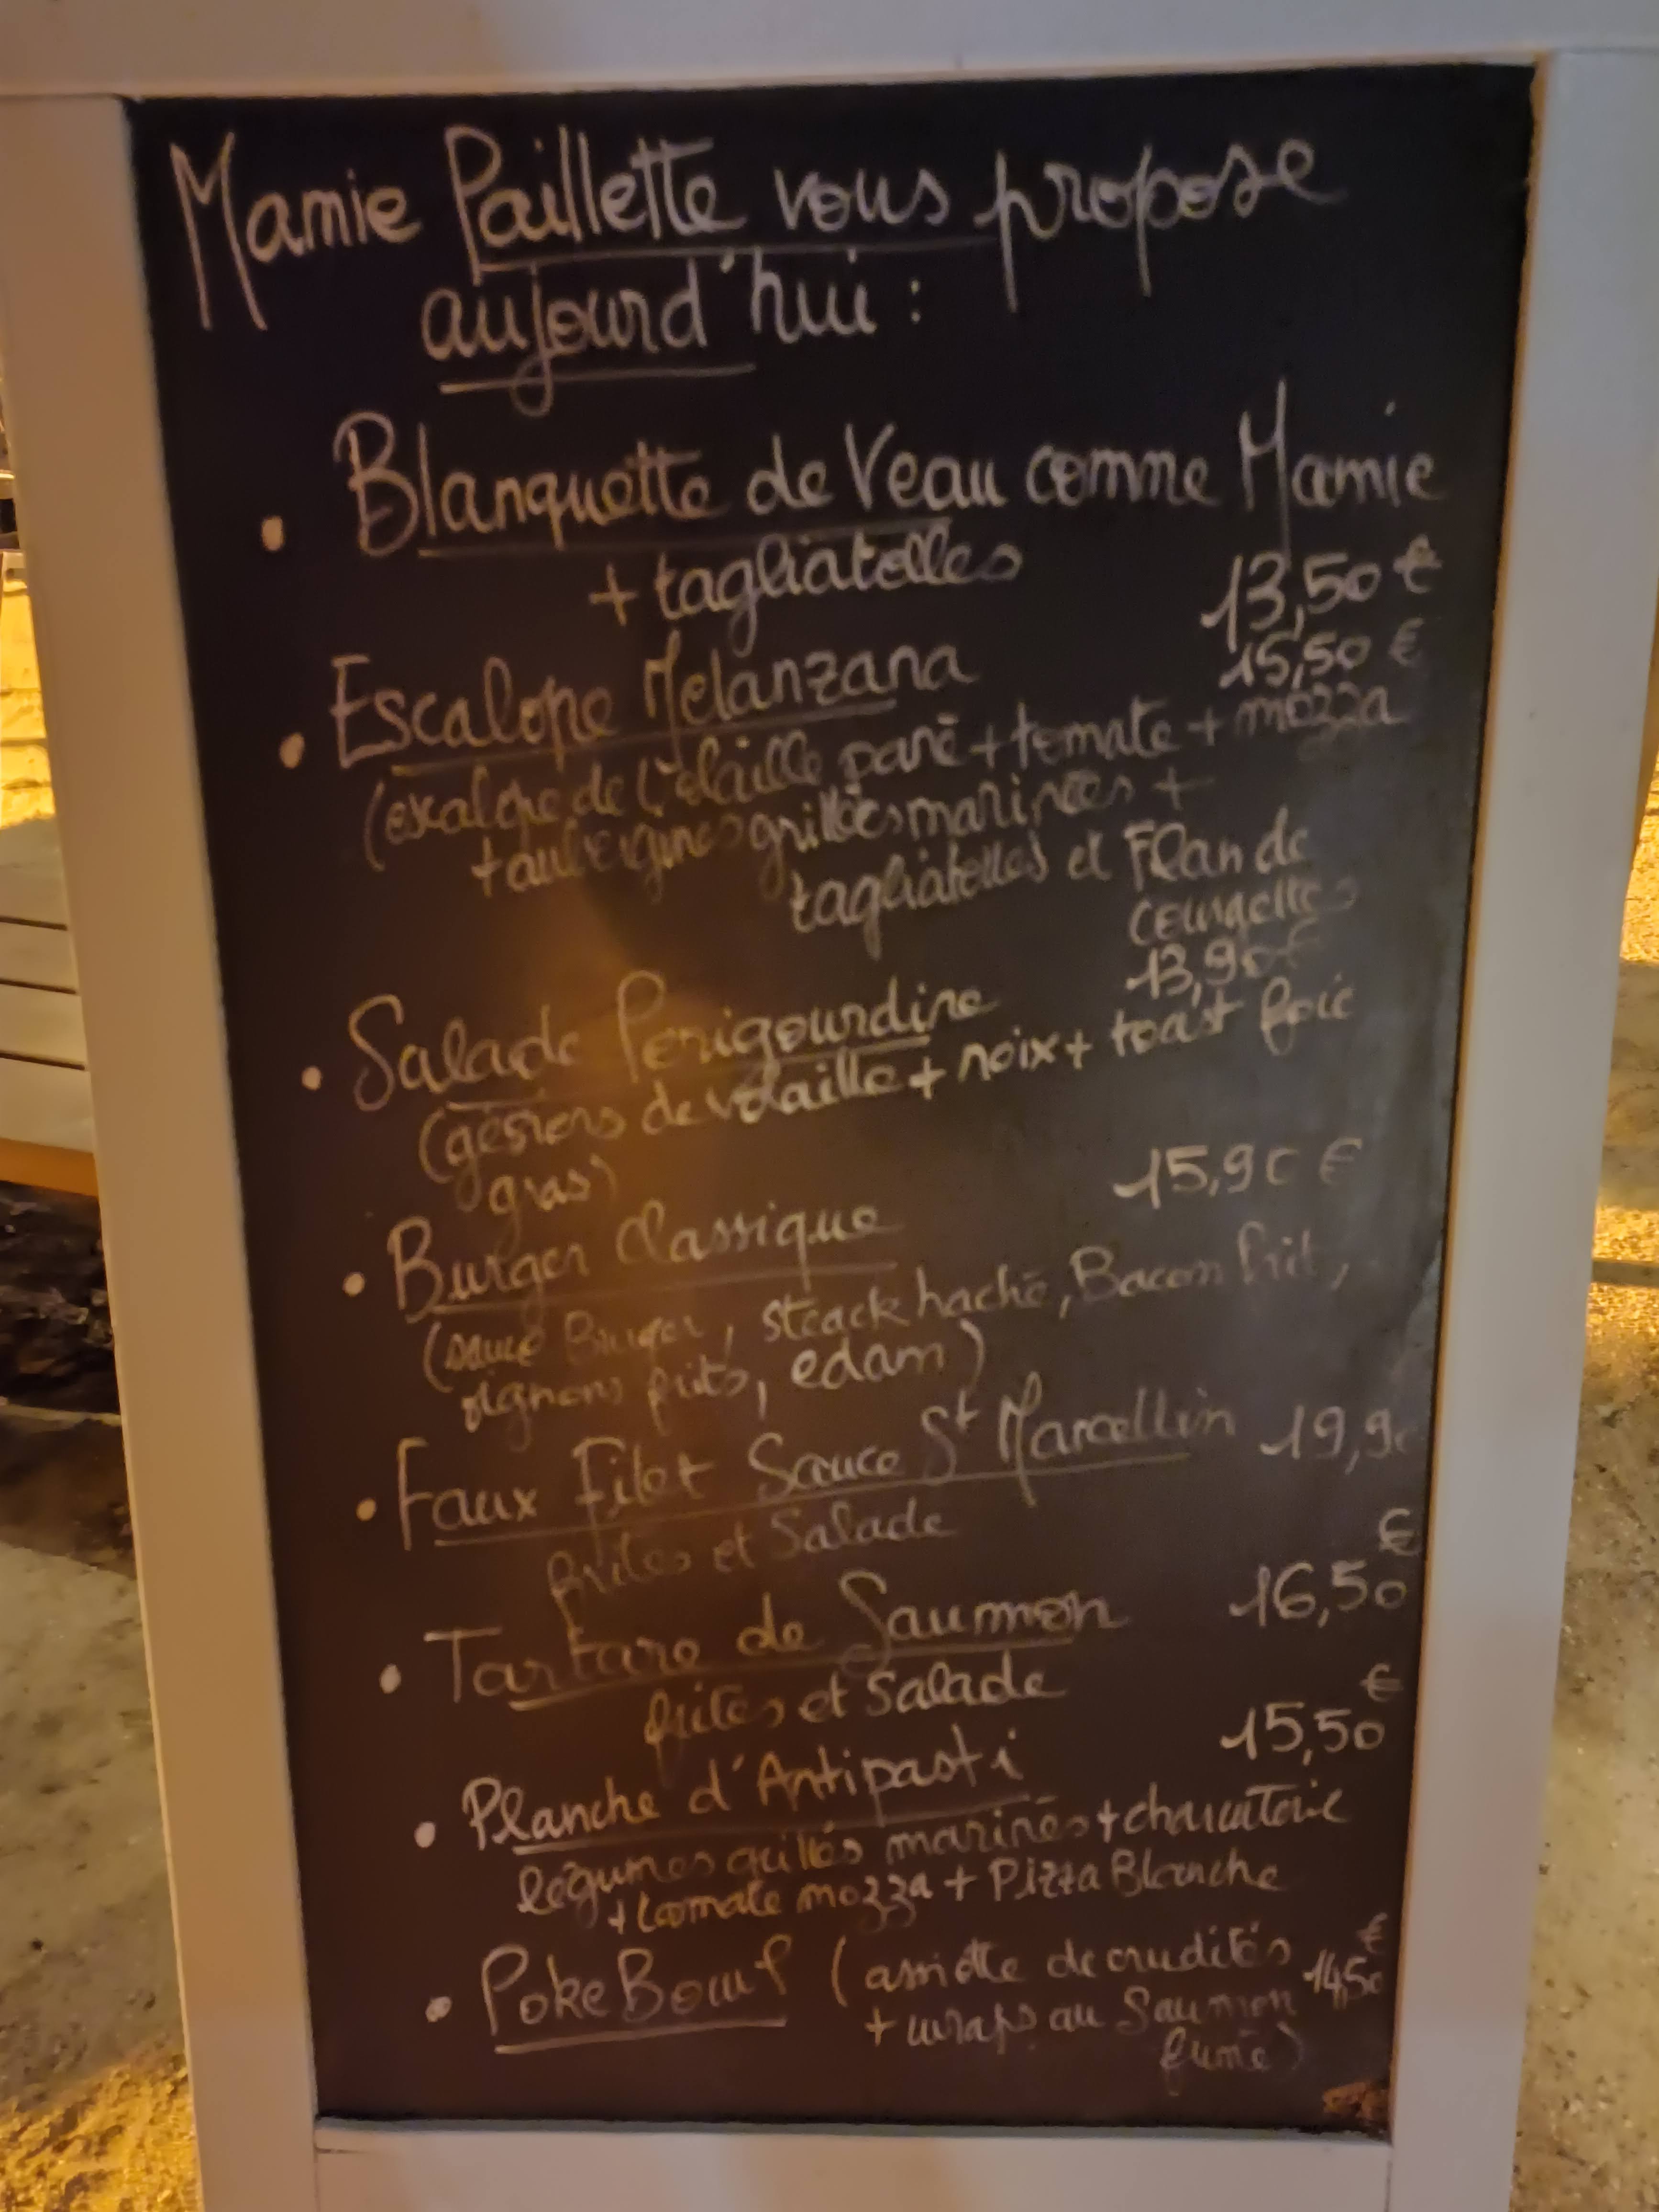 Mamie Paillette vous propose
aujourd'hui :
• Blanquette de Veau comme Mamie
+ tagliatelles 13,50 €
• Escalope Melanzana 15,50 €
(escalope de Volaille pané + tomate + mozza
+ aubergines grillées marinées +
tagliatelles et Flan de
courgettes
13,90 €
• Salade Perigourdine
(gésiers de volaille + noix + toast foie
gras)
• Burger Classique 15,90 €
(sauce Burger, steack haché, Bacon frit,
oignons frits, edam)
• Faux Filet Sauce St Marcellin 19,90
frites et Salade €
• Tartare de Saumon 16,50
frites et Salade €
• Planche d'Antipasti 15,50
légumes grillés marinés + charcuterie
+ tomate mozza + Pizza Blanche
• Poke Bowl (assiette de crudités €
14,50
+ wraps au Saumon
fumé)